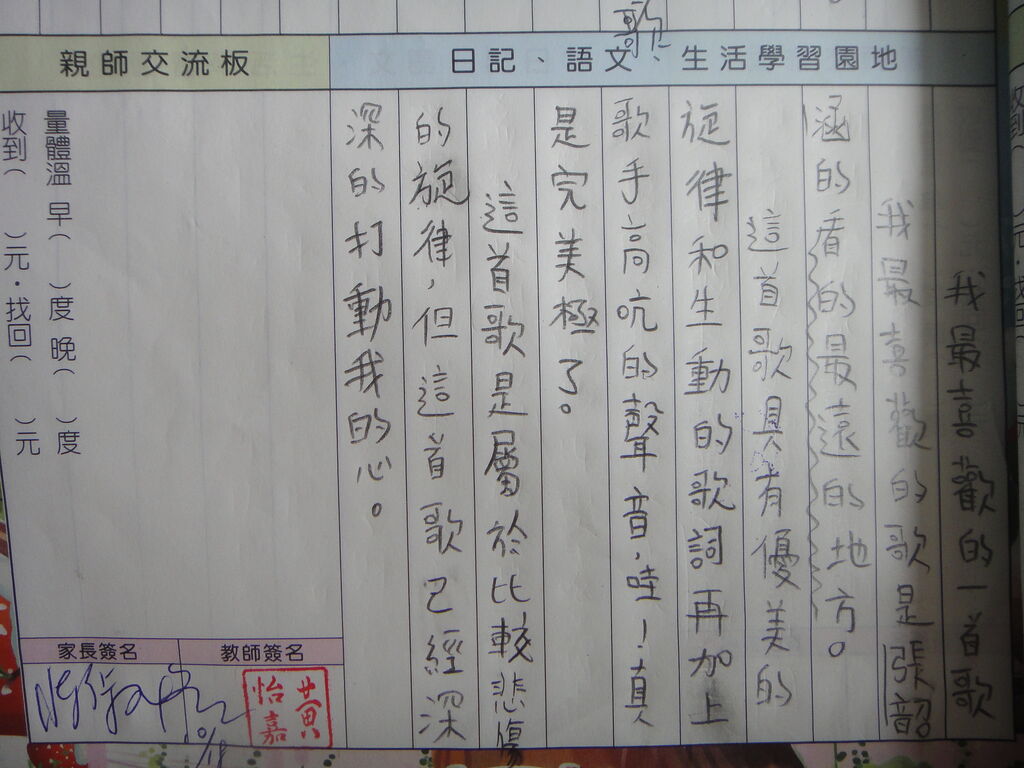 歌
日記、語文、生活學習園地
親師交流板
我最喜歡的一首歌
我最喜歡的歌是張韶
涵的看的最遠的地方。
這首歌具有優美的
旋律和生動的歌詞再加上
歌手高吭的聲音,哇!真
是完美極了。
這首歌是屬於比較悲傷
的旋律,但這首歌已經深
深的打動我的心。
量體溫 早( )度 晚( )度
收到( )元·找回( )元
教師簽名
家長簽名
黃怡嘉
10/18
收到( )元·找回( )元